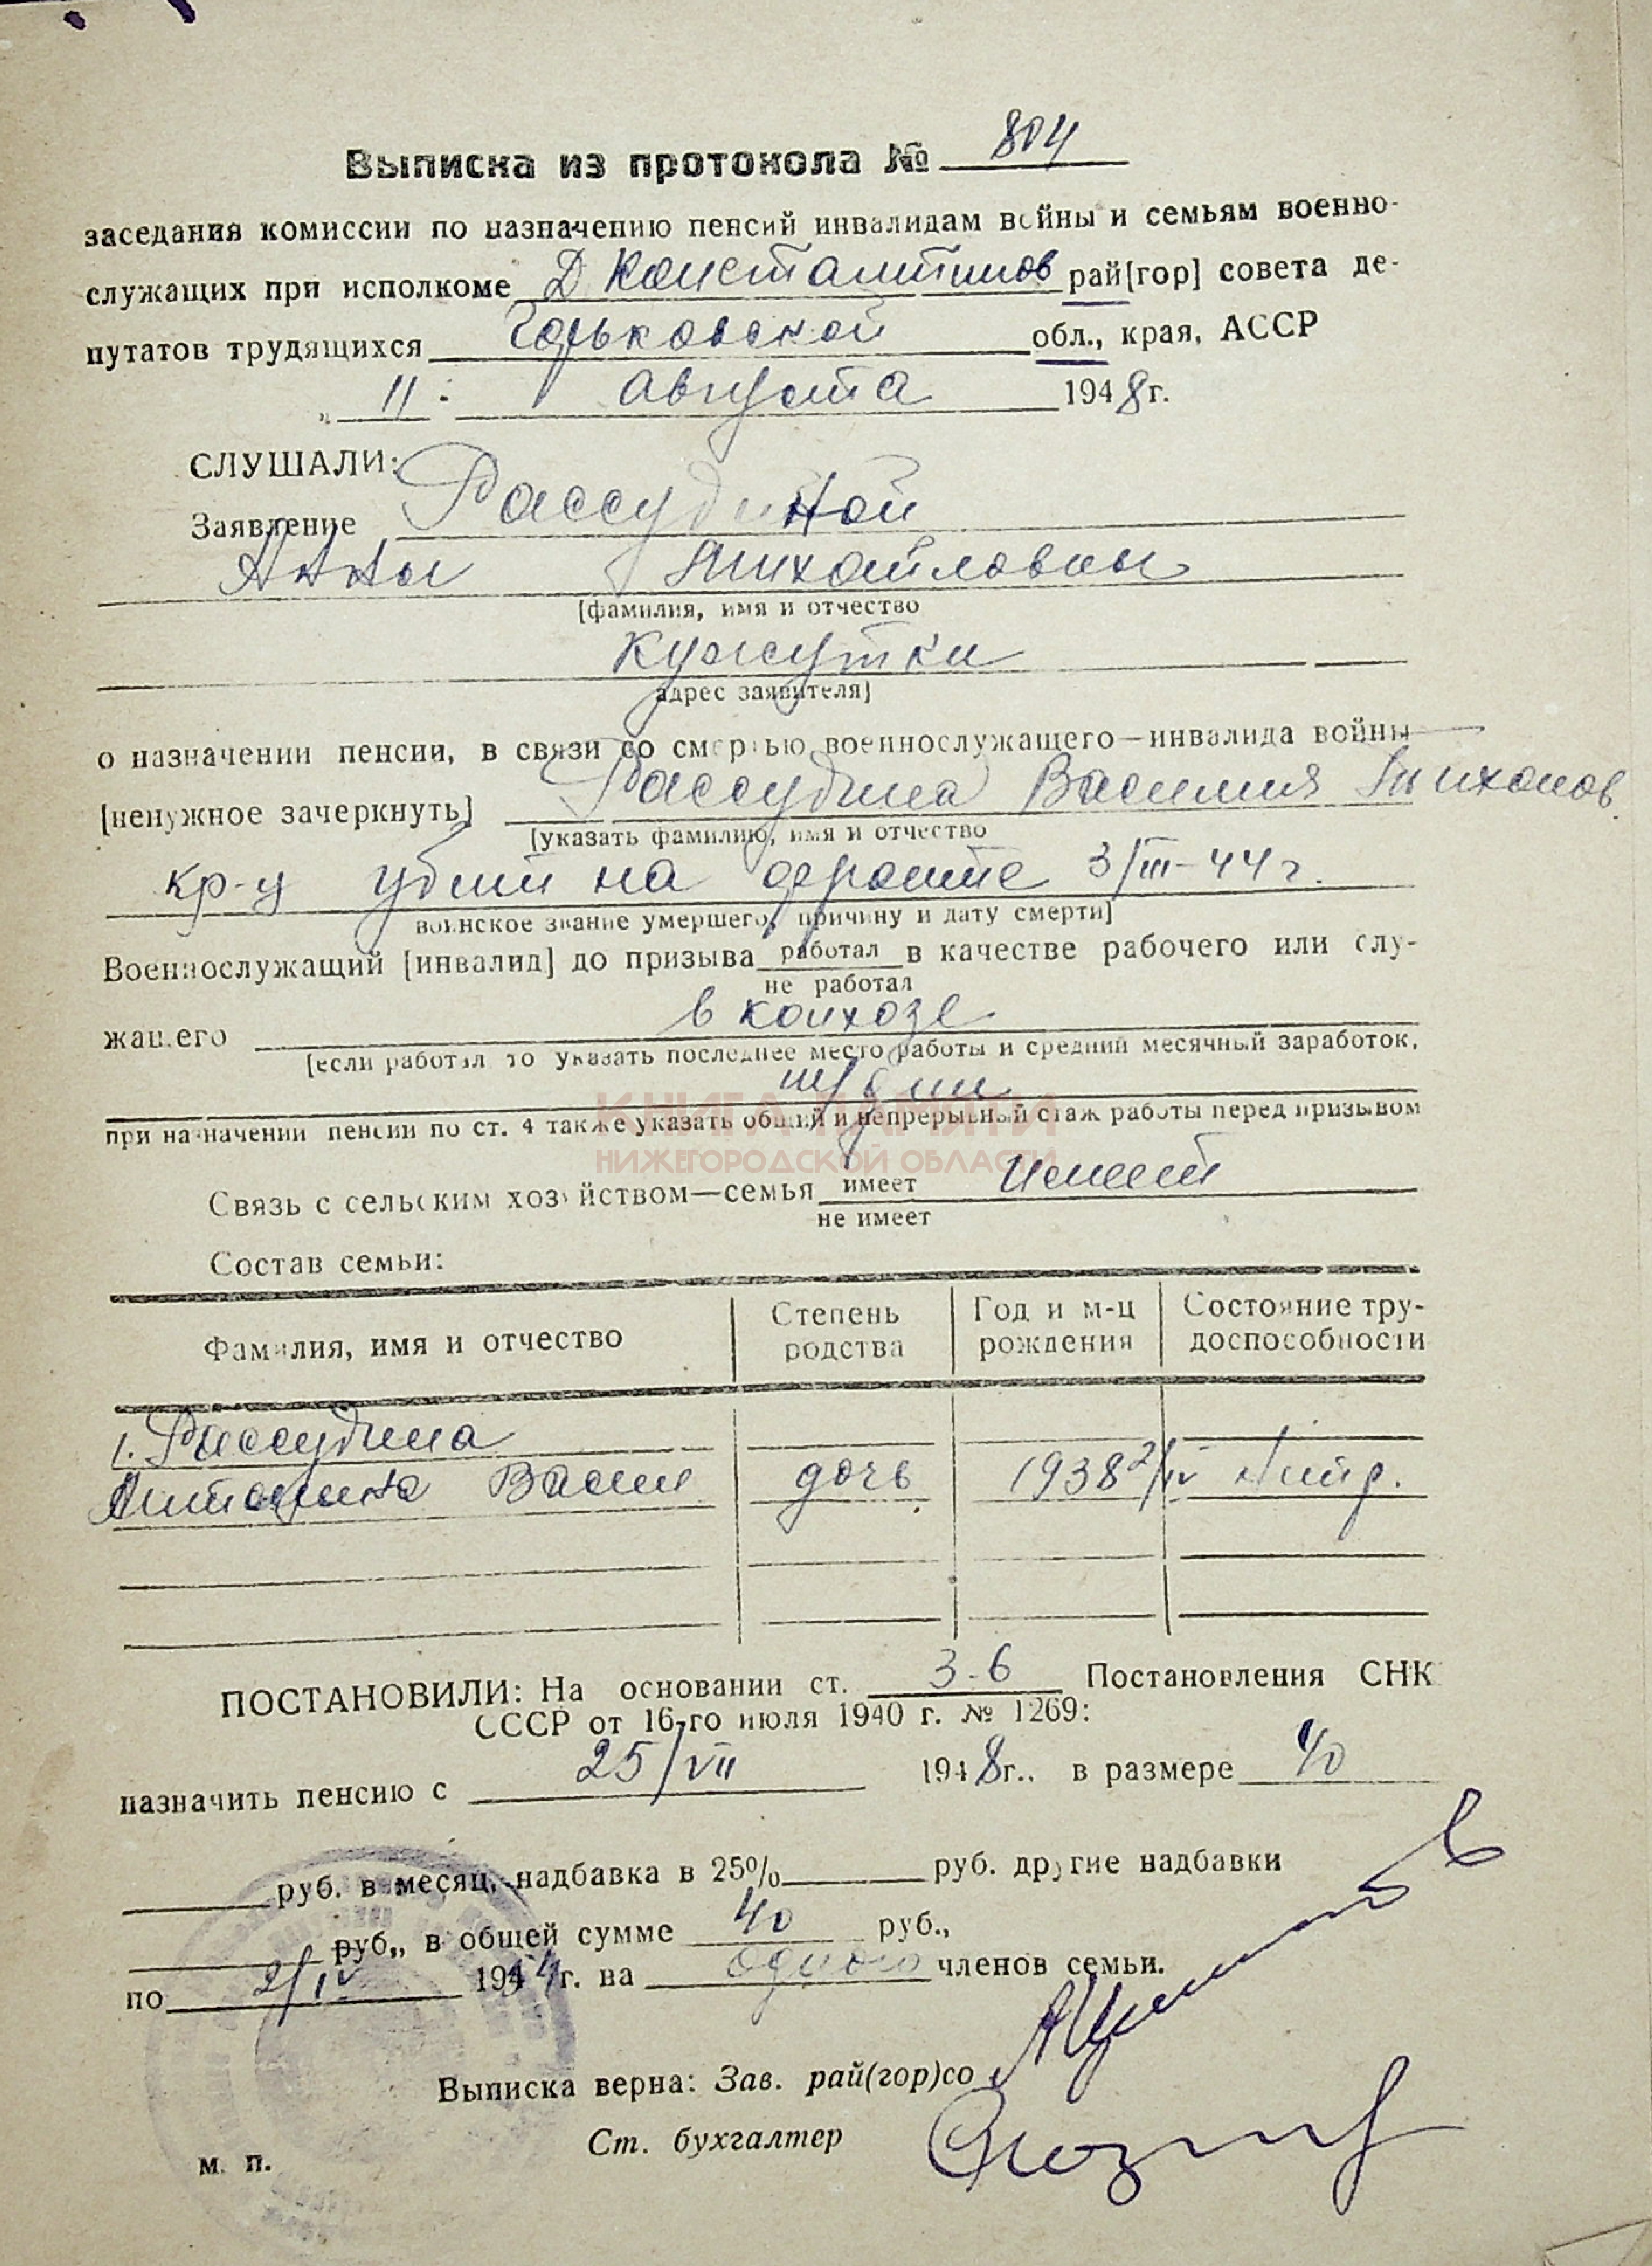 Выписка из протокола № 804
заседания комиссии по назначению пенсий инвалидам войны и семьям военно-
служащих при исполкоме Д Константинов рай[гор] совета де-
путатов трудящихся Горьковской обл., края, АССР
„ 11 " августа 1948 г.
СЛУШАЛИ:
Заявление Рассудиной
Анны Михайловны
[фамилия, имя и отчество
Кужутки
адрес заявителя]
о назначении пенсии, в связи со смертью военнослужащего—инвалида войны
[ненужное зачеркнуть] Рассудина Василия Тихонов
[указать фамилию, имя и отчество
кр-ц убит на фронте 3/III-44 г.
воинское звание умершего, причину и дату смерти]
Военнослужащий [инвалид] до призыва работал в качестве рабочего или слу-
не работал
жащего в колхозе
[если работал то указать последнее место работы и средний месячный заработок,
при назначении пенсии по ст. 4 также указать общий и непрерывный стаж работы перед призывом
КНИГА ПАМЯТИ
НИЖЕГОРОДСКОЙ ОБЛАСТИ
Связь с сельским хозяйством—семья имеет Имеет
не имеет
Состав семьи:
Фамилия, имя и отчество Степень родства Год и м-ц рождения Состояние тру-доспособности
1. Рассудина
Антонина Васил дочь 1938 2/IV
ПОСТАНОВИЛИ: На основании ст. 3-6 Постановления СНК
СССР от 16-го июля 1940 г. № 1269:
назначить пенсию с 25/VII 1948 г.. в размере 40
руб. в месяц, надбавка в 25% руб. другие надбавки
руб., в общей сумме 40 руб.,
по 2/IV 1954 г. на одного членов семьи.
Выписка верна: Зав. рай(гор)со
Ст. бухгалтер
м. п.